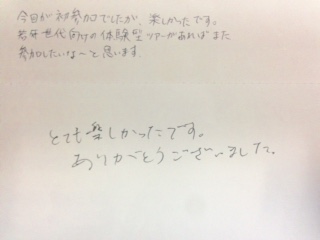 今回が初参加でしたが、楽しかったです。
若年世代向けの体験型ツアーがあればまた
参加したいな〜と思います。
とても楽しかったです。
ありがとうございました。